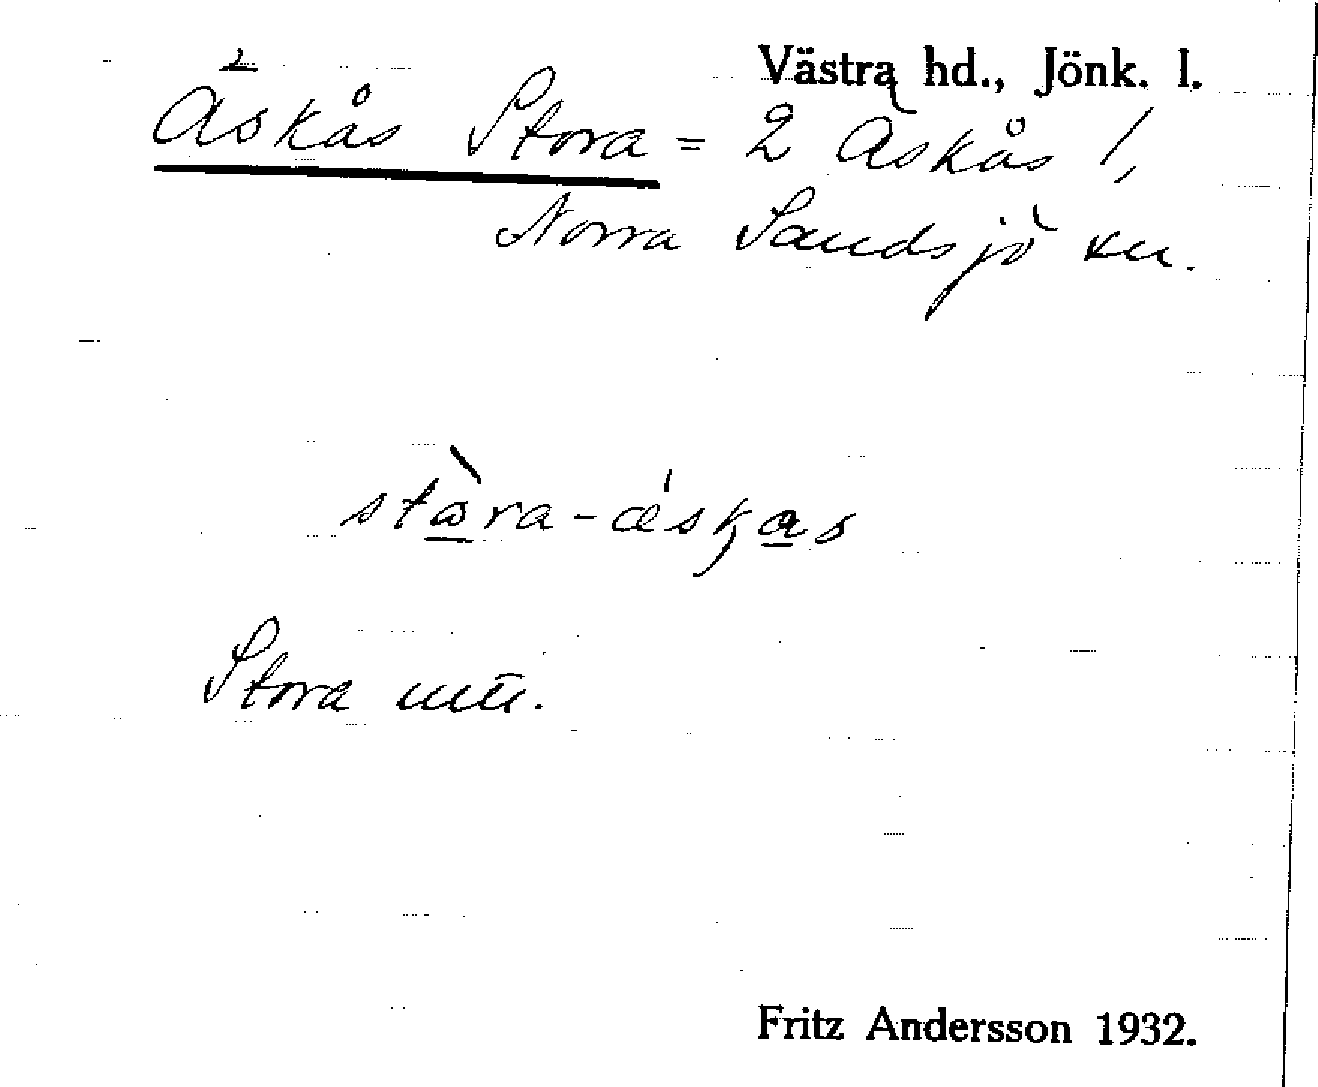 Västra hd., Jönk. l.
Äskås Stora = 2 Äskås 1,
Norra Sandsjö sn.
stàra-ǽskas
Stora mtl.
Fritz Andersson 1932.